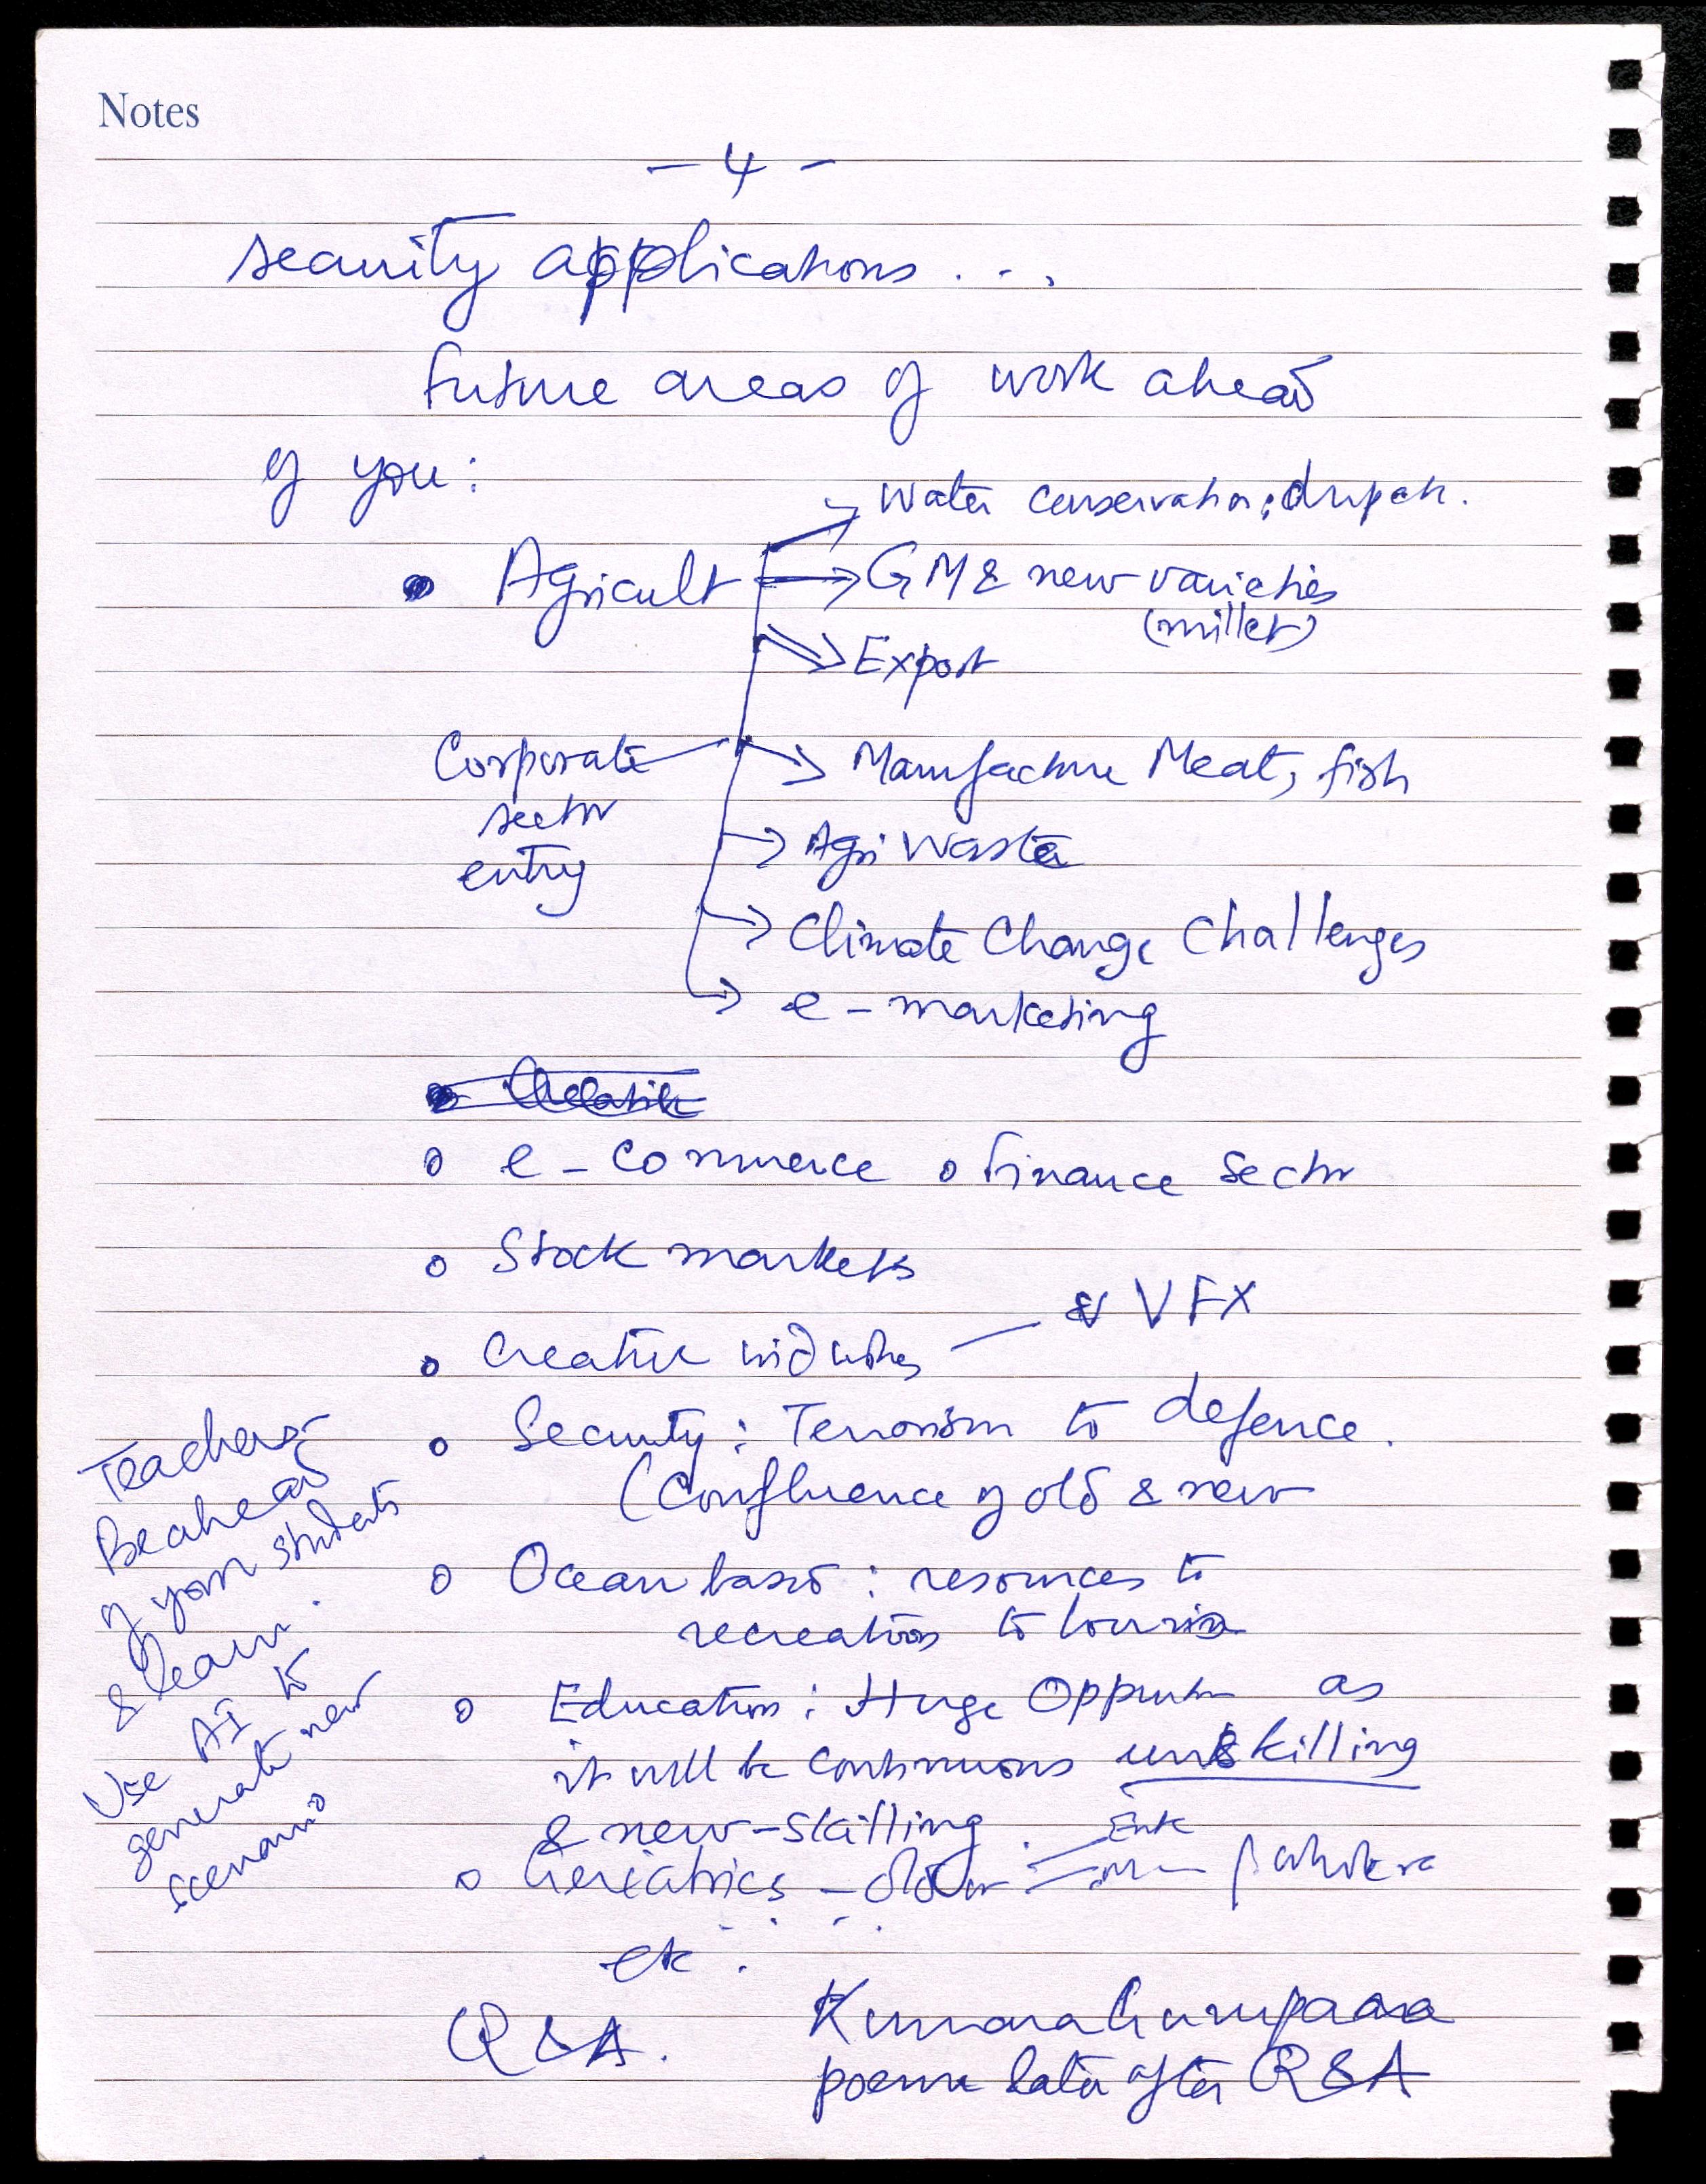 Notes
- 4 -
security applications ...
future areas of work ahead
of you:
Water conservation; drip etc.
• Agricult → GM & new varieties
(millet)
Export
Corporate
sector
entry
Manufacture Meat, fish
Agri Waste
Climate Change Challenges
e-marketing
o e-commerce o finance sector
o Stock markets
& VFX
o Creative industries
o Security: Terrorism to defence.
(Confluence of old & new
o Ocean based: resources to
recreation to tourism
o Education: Huge Opportun as
it will be continuous unskilling
& new-skilling
o Geriatrics - older
etc.
Q & A.
Kumara Guruparar
poem later after Q&A
Teachers
Be ahead
of your students
& learn.
Use AI to
generate new
scenario